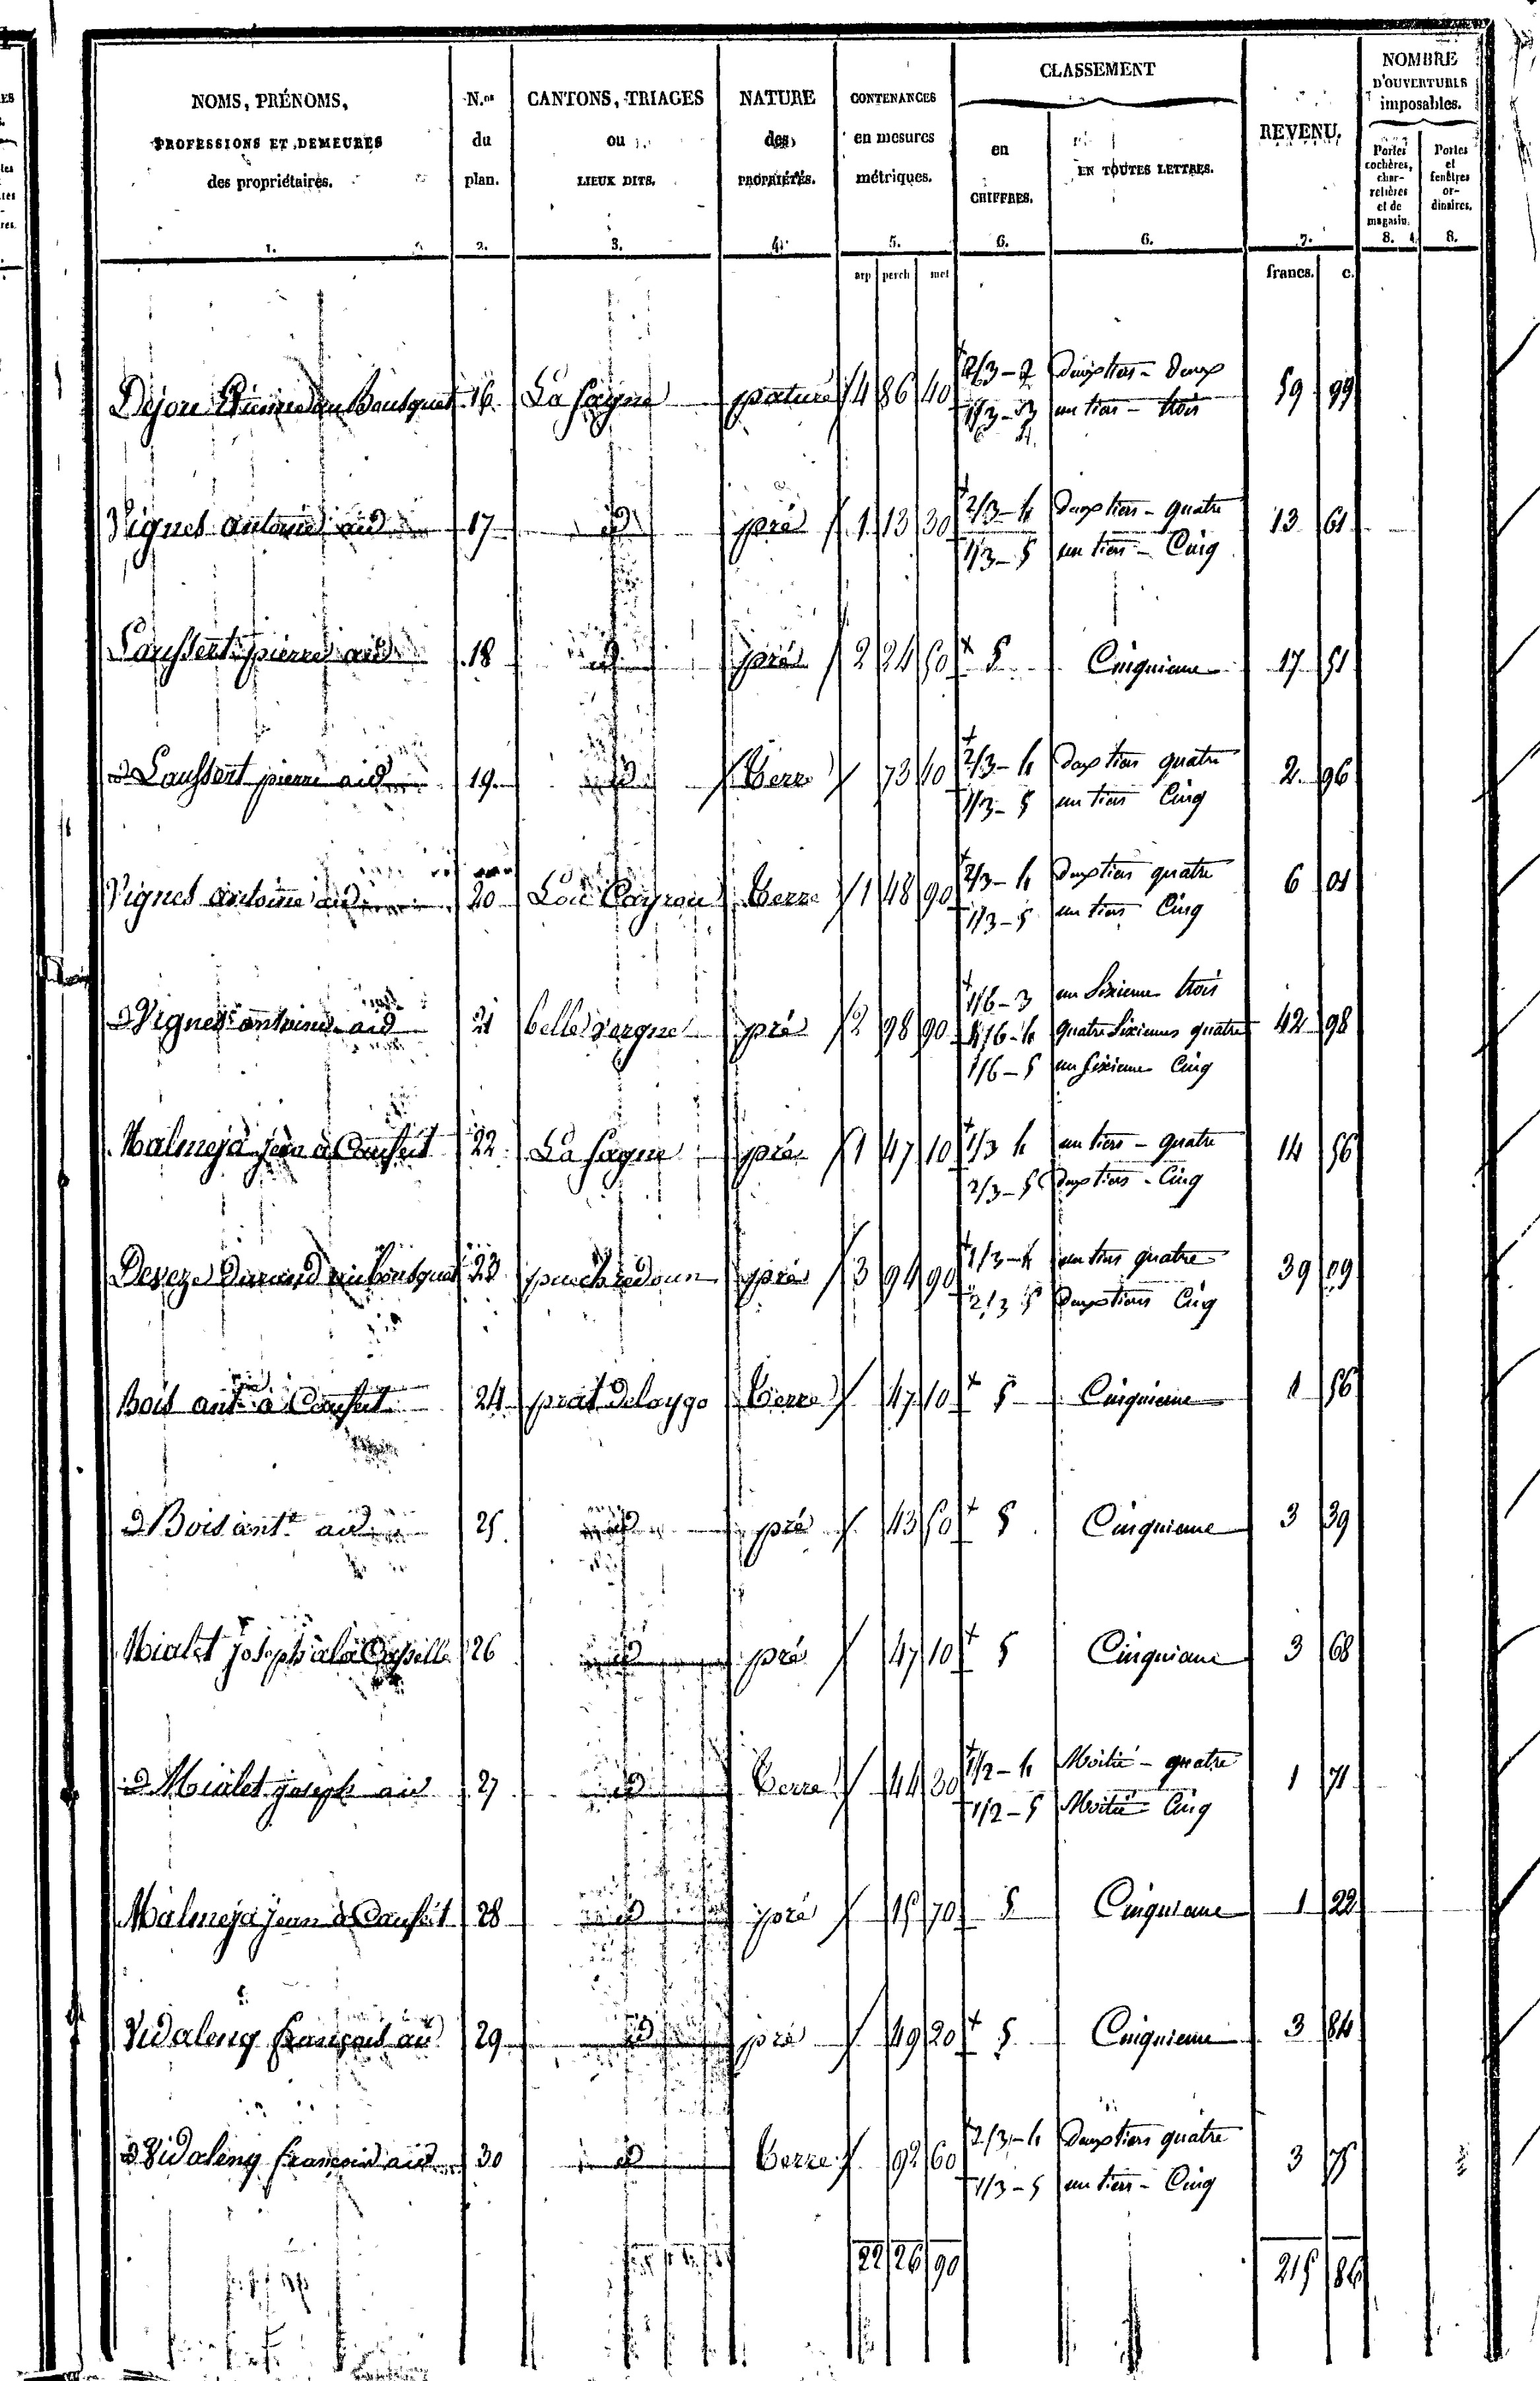 NOMS, PRÉNOMS, PROFESSIONS ET DEMEURES des propriétaires. 1.
N.os du plan. 2.
CANTONS, TRIAGES ou LIEUX DITS. 3.
NATURE des PROPRIÉTÉS. 4.
CONTENANCES en mesures métriques. 5.
CLASSEMENT
en CHIFFRES. 6.
EN TOUTES LETTRES. 6.
REVENU. 7.
NOMBRE D'OUVERTURES imposables.
Portes cochères, charretières et de magasin. 8.
Portes et fenêtres ordinaires. 8.
arp perch met francs. c.
Dejou Etienne au Bousquet 16 La fagne pature 4 86 40 2/3-2 deux tiers - deux 59 99
1/3-3 un tiers - trois
Vignes antoine aud 17 id pré 1 13 30 2/3-4 deux tiers - quatre 13 61
1/3-5 un tiers - Cinq
Laussert pierre aud 18 id pré 2 24 50 5 Cinquieme 17 51
d Laussert pierre aud 19 id terre 73 40 2/3-4 deux tiers quatre 2 96
1/3-5 un tiers Cinq
Vignes antoine aud 20 Lou Cayrou terre 1 48 90 2/3-4 deux tiers quatre 6 01
1/3-5 un tiers Cinq
d Vignes antoine aud 21 belle vergne pré 2 98 90 1/6-3 un Sixieme trois 42 98
4/6-4 quatre Sixiemes quatre
1/6-5 un Sixieme Cinq
Malmeja jean à 22 La fagne pré 1 47 10 1/3 4 un tiers - quatre 14 56
2/3-5 deux tiers - Cinq
Deveze Durand au bousquet 23 puech redoun pré 3 94 90 1/3-4 un tiers quatre 39 09
2/3 5 deux tiers Cinq
Bois ant.e à 24 prat delaygo terre 47 10 5 Cinquieme 1 56
d Bois ant.e aud 25 id pré 43 50 5 Cinquieme 3 39
Mialet joseph à la Capelle 26 id pré 47 10 5 Cinquieme 3 68
d Mialet joseph aud 27 id terre 44 30 1/2-4 Moitié - quatre 1 71
1/2-5 Moitié - Cinq
Malmeja jean à 28 id pré 15 70 5 Cinquieme 1 22
Vidaleng françois aud 29 id pré 49 20 5 Cinquieme 3 84
d Vidaleng françois aud 30 id terre 92 60 2/3-4 deux tiers quatre 3 75
1/3-5 un tiers - Cinq
22 26 90 215 86